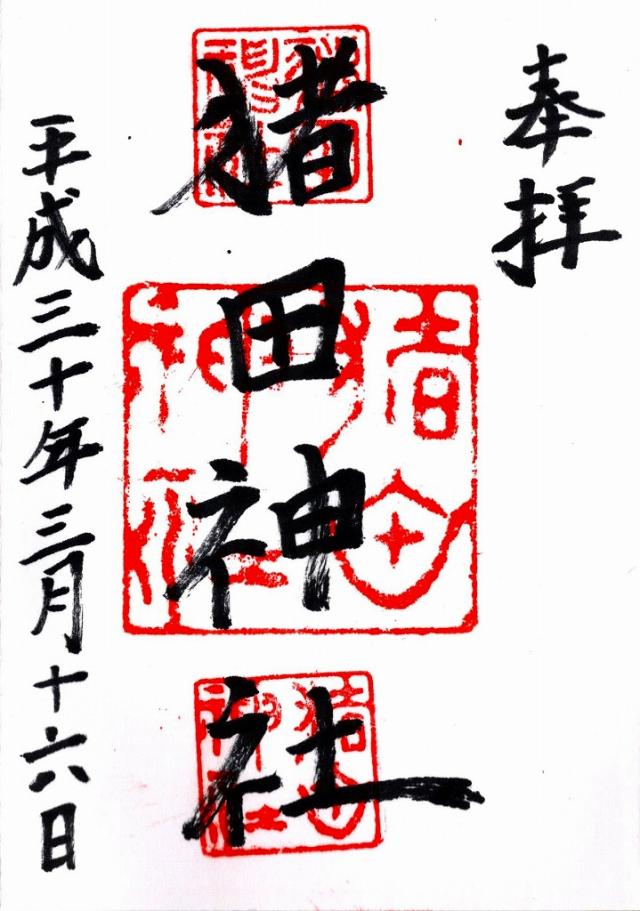 奉拝
猪田神社
平成三十年三月十六日